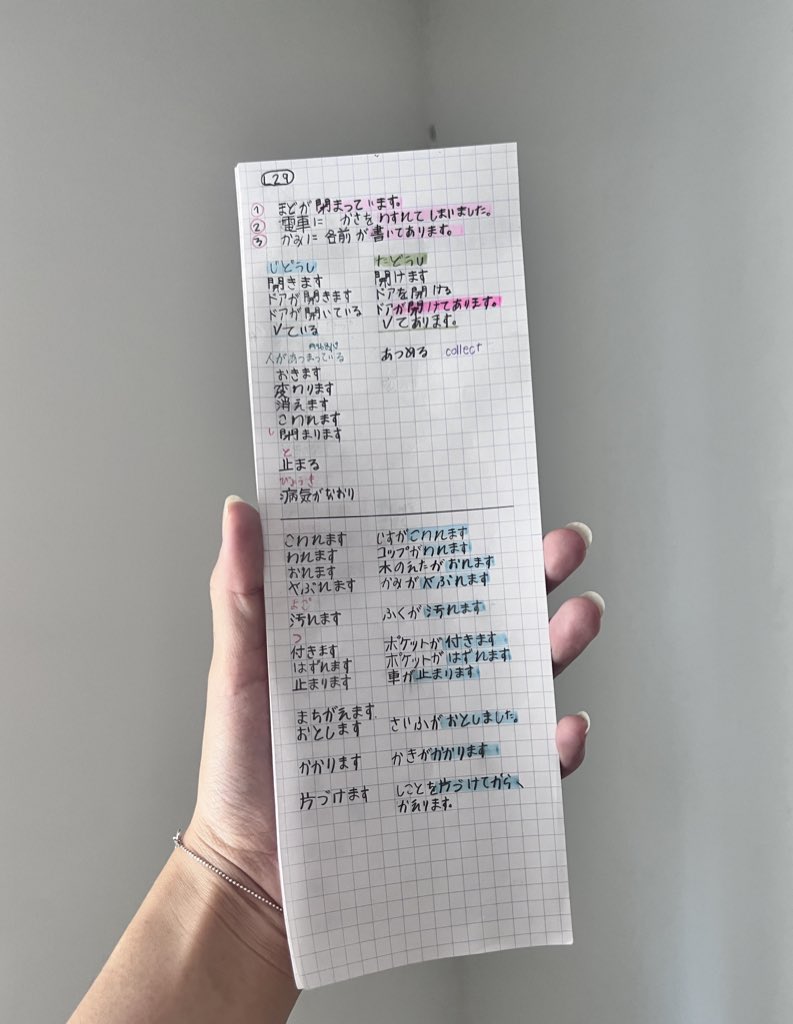 L29
① まどが閉まっています。
② 電車に かさを わすれて しまいました。
③ かみに 名前が 書いてあります。
じどうし たどうし
開きます 開けます
ドアが開きます ドアを開ける
ドアが開いている ドアが開けてあります。
Vている Vてあります。
人があつまっている あつめる collect
おきます
変わります
消えます
こわれます
し
閉まります
と
止まる
びょうき
病気がなおり
こわれます いすがこわれます
われます コップがわれます
おれます 木のえだが おれます
やぶれます かみが やぶれます
よご
汚れます ふくが 汚れます
つ
付きます ポケットが 付きます
はずれます ポケットが はずれます
止まります 車が止まります
まちがえます
おとします さいふがおとしました。
かかります かぎがかかります
片づけます しごとを片づけてから、
かえります。